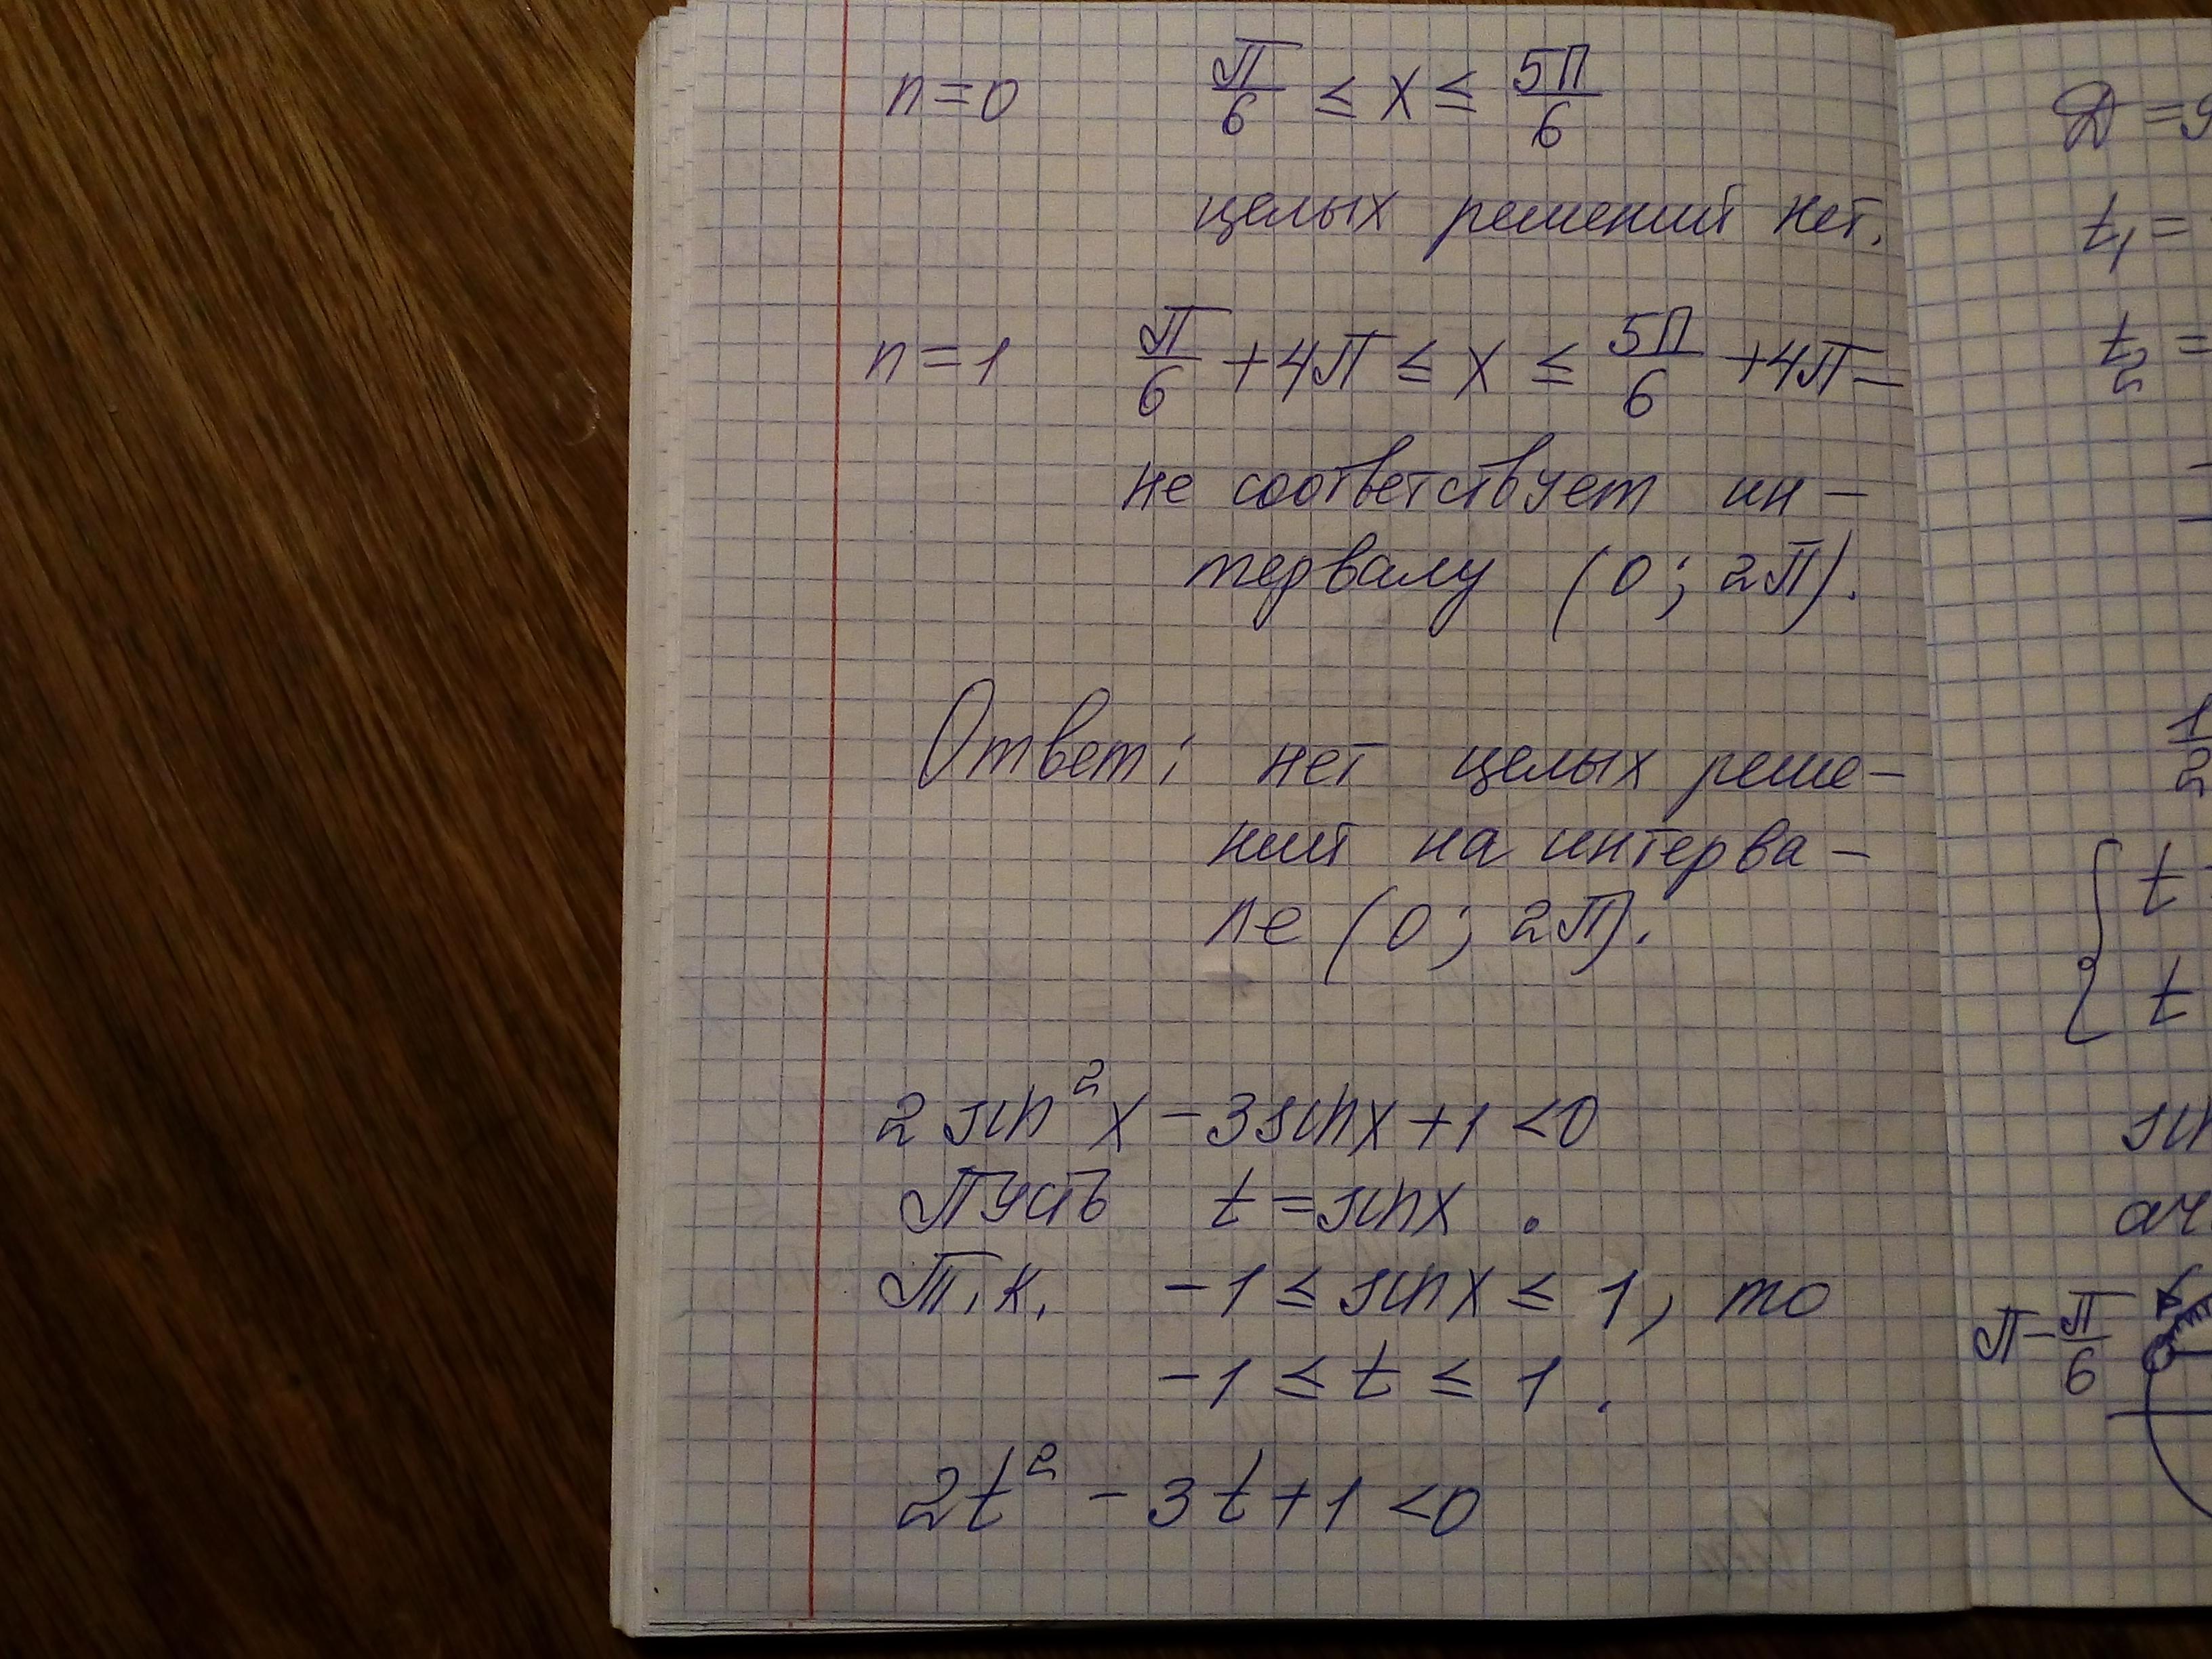 n=0 π/6 ≤ x ≤ 5π/6
целых решений нет.
n=1 π/6 +4π ≤ x ≤ 5π/6 +4π –
не соответствует ин-
тервалу (0; 2π).
Ответ: нет целых реше-
ний на интерва-
ле (0; 2π).
2 sin²x – 3sinx +1 <0
Пусть t = sinx .
Т.к. -1 ≤ sinx ≤ 1, то
-1 ≤ t ≤ 1 .
2t² – 3t +1 <0
D =9
t₁ =
t₂ =
1/2
t
t
sin
π– π/6